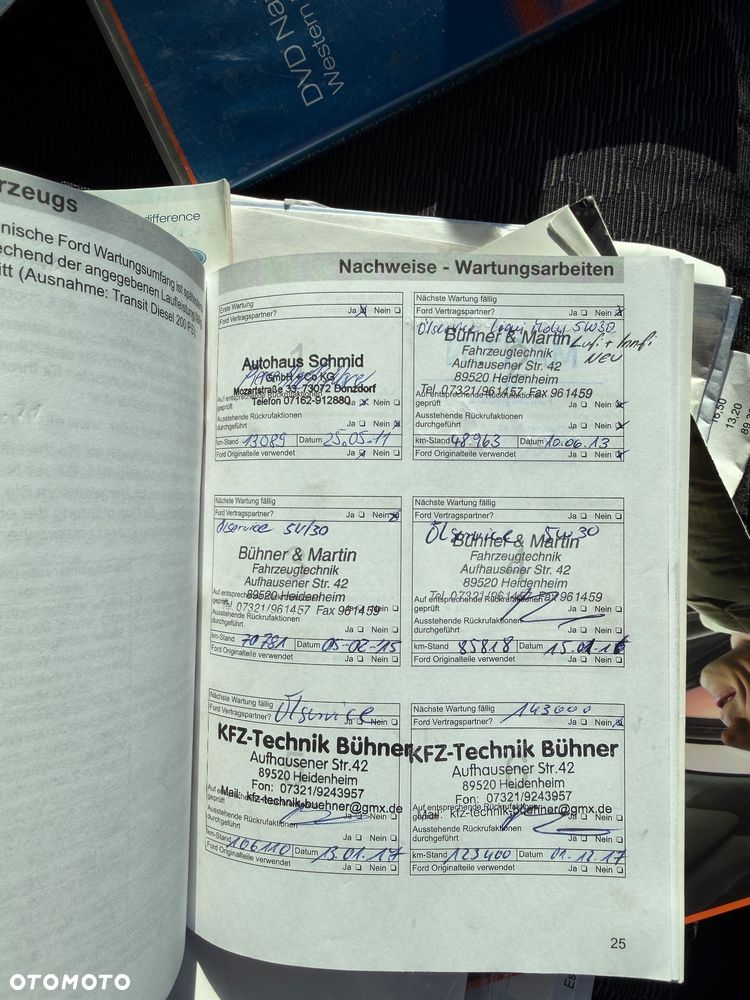 DVD Na
Western
rzeugs
nische Ford Wartungsumfang ist
echend der angegebenen Laufleistung
itt (Ausnahme: Transit Diesel 200 PS)
difference
Nachweise - Wartungsarbeiten
Erste Wartung
Ford Vertragspartner? Ja Nein
Autohaus Schmid
GmbH + Co KG
Mozartstraße 33 73072 Donzdorf
Telefon 07162-912880
Auf entsprechende Rückrufaktionen
geprüft Ja Nein
Ausstehende Rückrufaktionen
durchgeführt Ja Nein
km-Stand 13089 Datum 25.05.11
Ford Originalteile verwendet Ja Nein
Nächste Wartung fällig
Ford Vertragspartner? Ja Nein
Ölservice Liqui Moly 5W30
Lufi + Innfi
NEU
Bühner & Martin
Fahrzeugtechnik
Aufhausener Str. 42
89520 Heidenheim
Tel. 07321/961457 Fax 961459
Auf entsprechende Rückrufaktionen
geprüft Ja Nein
Ausstehende Rückrufaktionen
durchgeführt Ja Nein
km-Stand 48963 Datum 10.06.13
Ford Originalteile verwendet Ja Nein
Nächste Wartung fällig
Ford Vertragspartner? Ja Nein
Ölservice 5W30
Bühner & Martin
Fahrzeugtechnik
Aufhausener Str. 42
89520 Heidenheim
Tel. 07321/961457 Fax 961459
Auf entsprechende Rückrufaktionen
geprüft Ja Nein
Ausstehende Rückrufaktionen
durchgeführt Ja Nein
km-Stand 70781 Datum 05-02-15
Ford Originalteile verwendet Ja Nein
Nächste Wartung fällig
Ford Vertragspartner? Ja Nein
Ölservice 5W30
Bühner & Martin
Fahrzeugtechnik
Aufhausener Str. 42
89520 Heidenheim
Tel. 07321/961457 Fax 961459
Auf entsprechende Rückrufaktionen
geprüft Ja Nein
Ausstehende Rückrufaktionen
durchgeführt Ja Nein
km-Stand 85818 Datum 15.01.16
Ford Originalteile verwendet Ja Nein
Nächste Wartung fällig
Ford Vertragspartner? Ja Nein
Ölservice
KFZ-Technik Bühner
Aufhausener Str.42
89520 Heidenheim
Fon: 07321/9243957
Mail: kfz-technik-buehner@gmx.de
Auf entsprechende Rückrufaktionen
geprüft Ja Nein
Ausstehende Rückrufaktionen
durchgeführt Ja Nein
km-Stand 106110 Datum 13.01.17
Ford Originalteile verwendet Ja Nein
Nächste Wartung fällig 143000
Ford Vertragspartner? Ja Nein
KFZ-Technik Bühner
Aufhausener Str.42
89520 Heidenheim
Fon: 07321/9243957
Mail: kfz-technik-buehner@gmx.de
Auf entsprechende Rückrufaktionen
geprüft Ja Nein
Ausstehende Rückrufaktionen
durchgeführt Ja Nein
km-Stand 123400 Datum 01.12.17
Ford Originalteile verwendet Ja Nein
25
13,20
OTOMOTO